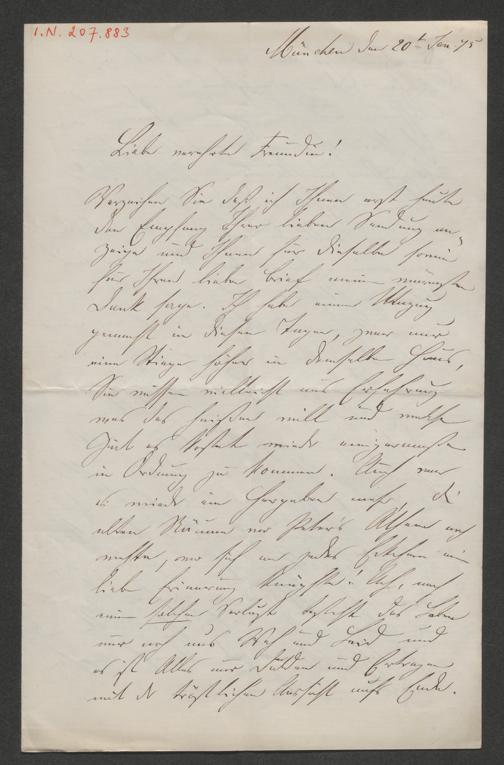 I.N. 207.883
München den 20t Jan. 75
Liebe verehrte Freundin!
Verzeihen Sie daß ich Ihnen erst heute
den Empfang Ihrer lieben Sendung an-
zeige und Ihnen für dieselbe sowie
für Ihren lieben Brief meinen innigsten
Dank sage. Ich habe einen Umzug
gemacht in diesen Tagen, zwar nur
eine Stiege höher in demselben Haus,
Sie wissen vielleicht aus Erfahrung
was das heißen will und welche
Zeit es kostet wieder einigermaßen
in Ordnung zu kommen. Auch war
es wieder ein Herzeleid mehr, die
alten Räume wo Peters Athem noch
wehte, wo sich an jedes Eckchen eine
liebe Erinnerung knüpfte! Ach, nach
einem solchen Verluste besteht das Leben
nur noch aus Weh und Leid und
es ist Alles nur Dulden und Ertragen
mit der tröstlichen Aussicht aufs Ende.